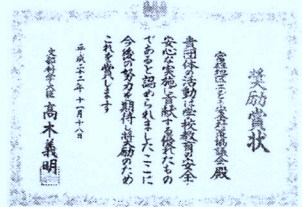 奨励賞状
協議会 殿
貴団体の活動は学校教育の安全
安心な実施に貢献する優れたもの
であると認められましたここに
今後の努力を期待し奨励のため
これを賞します
平成二十二年十一月十八日
文部科学大臣
髙木義明